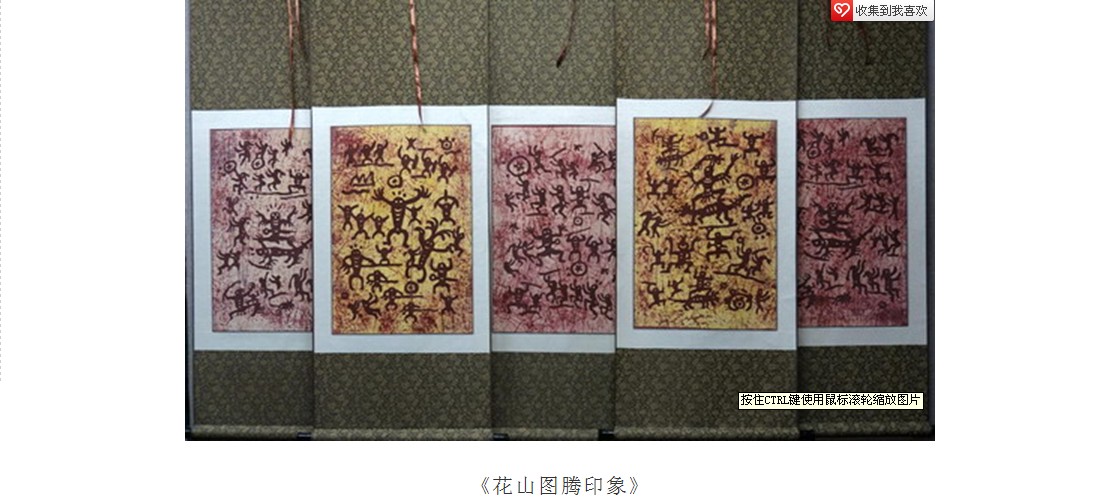 收集到我喜欢
按住CTRL键使用鼠标滚轮缩放图片
《花山图腾印象》